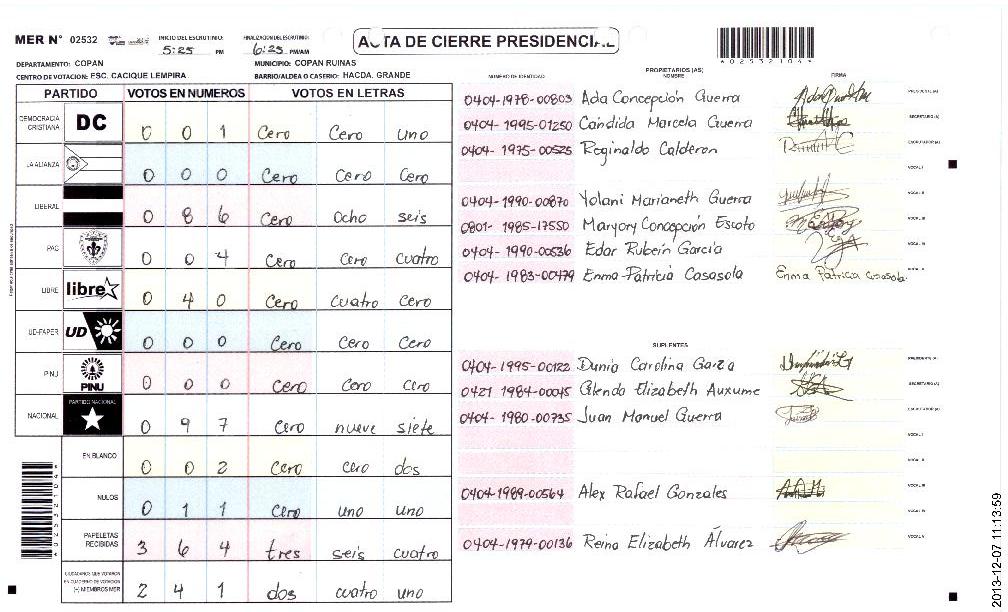 MER N° 02532
INICIO DEL ESCRUTINIO: 5:25 PM
FINALIZACION DEL ESCRUTINIO: 6:25 PM/AM
ACTA DE CIERRE PRESIDENCIAL
*02532104*
DEPARTAMENTO: COPAN
MUNICIPIO: COPAN RUINAS
CENTRO DE VOTACION: ESC. CACIQUE LEMPIRA
BARRIO/ALDEA O CASERIO: HACDA. GRANDE
PARTIDO VOTOS EN NUMEROS VOTOS EN LETRAS
DEMOCRACIA CRISTIANA DC 0 0 1 Cero Cero uno
LA ALIANZA 0 0 0 Cero Cero Cero
LIBERAL 0 8 6 Cero ocho seis
PAC 0 0 4 Cero Cero cuatro
LIBRE libre 0 4 0 Cero cuatro Cero
UD-FAPER UD 0 0 0 Cero Cero Cero
PINU PINU 0 0 0 Cero Cero Cero
NACIONAL PARTIDO NACIONAL 0 9 7 Cero nueve siete
EN BLANCO 0 0 2 Cero cero dos
NULOS 0 1 1 Cero uno uno
PAPELETAS RECIBIDAS 3 6 4 tres seis cuatro
CIUDADANOS QUE VOTARON EN CUADERNO DE VOTACION (+) MIEMBROS MER 2 4 1 dos cuatro uno
PROPIETARIOS (AS)
NUMERO DE IDENTIDAD NOMBRE FIRMA
0404-1978-00803 Ada Concepción Guerra PRESIDENTE (A)
0404-1995-01250 Candida Marcela Guerra SECRETARIO (A)
0404-1975-00525 Reginaldo Calderon ESCRUTADOR (A)
VOCAL I
0404-1990-00870 Yolani Marianeth Guerra VOCAL II
0801-1985-17550 Maryory Concepción Escoto VOCAL III
0404-1990-00536 Edar Rubein Garcia VOCAL IV
0404-1983-00479 Enma Patricia Casasola Enma Patricia Casasola VOCAL V
SUPLENTES
0404-1995-00122 Dunia Carolina Garza PRESIDENTE (A)
0421 1984-00045 Glenda Elizabeth Auxume SECRETARIO (A)
0404-1980-00735 Juan Manuel Guerra ESCRUTADOR (A)
VOCAL I
VOCAL II
0404-1989-00564 Alex Rafael Gonzales VOCAL III
VOCAL IV
0404-1979-00136 Reina Elizabeth Álvarez VOCAL V
2013-12-07 11:13:59